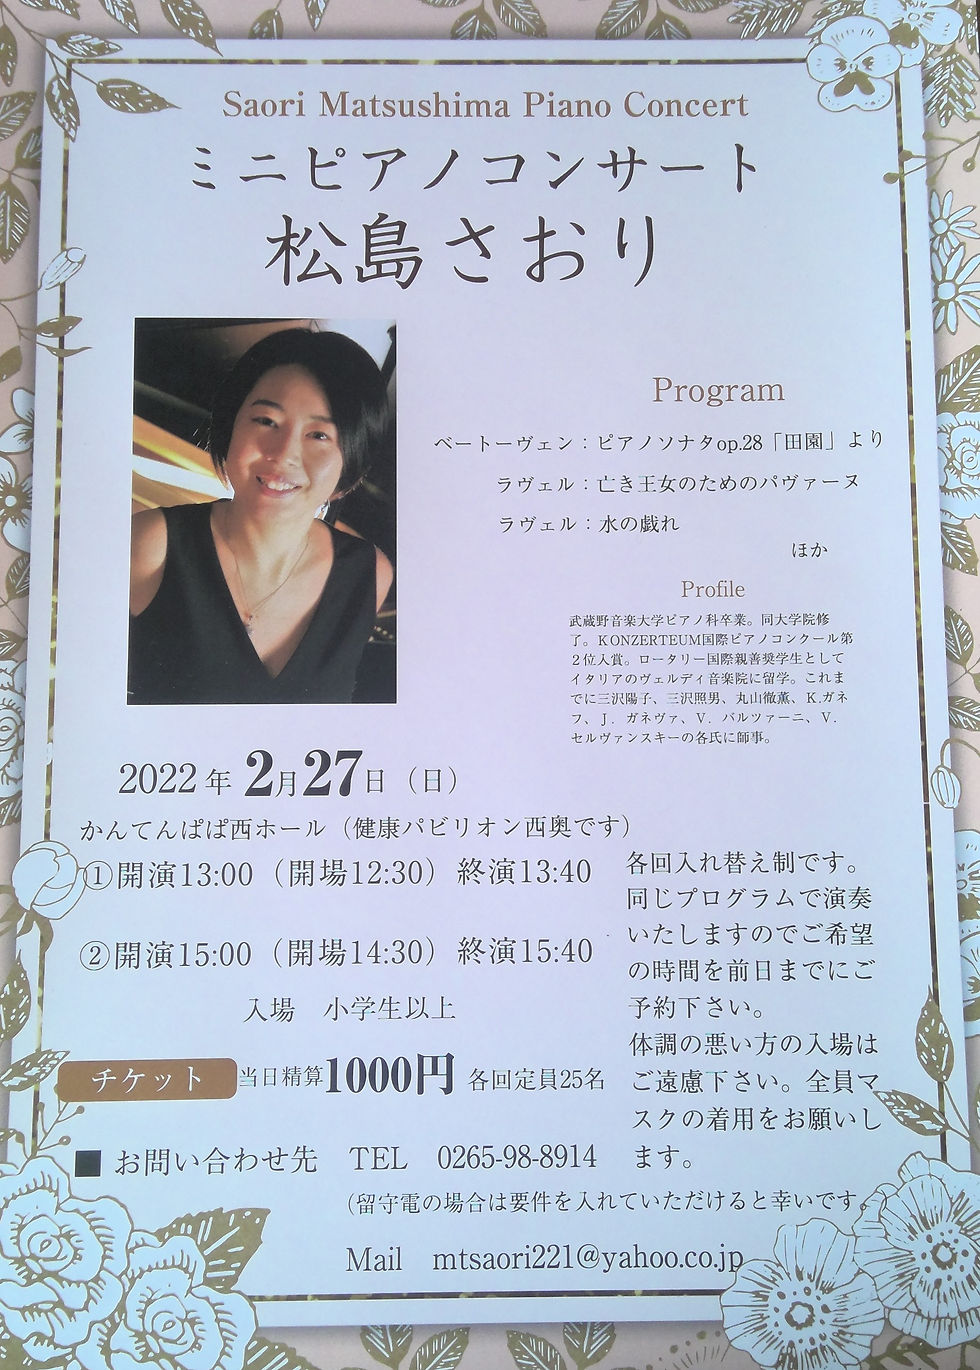 Saori Matsushima Piano Concert
ミニピアノコンサート
松島さおり
Program
ベートーヴェン：ピアノソナタop.28「田園」より
ラヴェル：亡き王女のためのパヴァーヌ
ラヴェル：水の戯れ
ほか
Profile
武蔵野音楽大学ピアノ科卒業。同大学院修
了。KONZERTEUM国際ピアノコンクール第
２位入賞。ロータリー国際親善奨学生として
イタリアのヴェルディ音楽院に留学。これま
でに三沢陽子、三沢照男、丸山徹薫、K.ガネ
フ、J．ガネヴァ、V．バルツァーニ、V．
セルヴァンスキーの各氏に師事。
2022年 2月27日（日）
かんてんぱぱ西ホール（健康パビリオン西奥です）
①開演13:00（開場12:30）終演13:40
②開演15:00（開場14:30）終演15:40
入場　小学生以上
各回入れ替え制です。
同じプログラムで演奏
いたしますのでご希望
の時間を前日までにご
予約下さい。
体調の悪い方の入場は
ご遠慮下さい。全員マ
スクの着用をお願いし
ます。
チケット 当日精算1000円 各回定員25名
■ お問い合わせ先　TEL　0265-98-8914
（留守電の場合は要件を入れていただけると幸いです。
Mail　mtsaori221@yahoo.co.jp